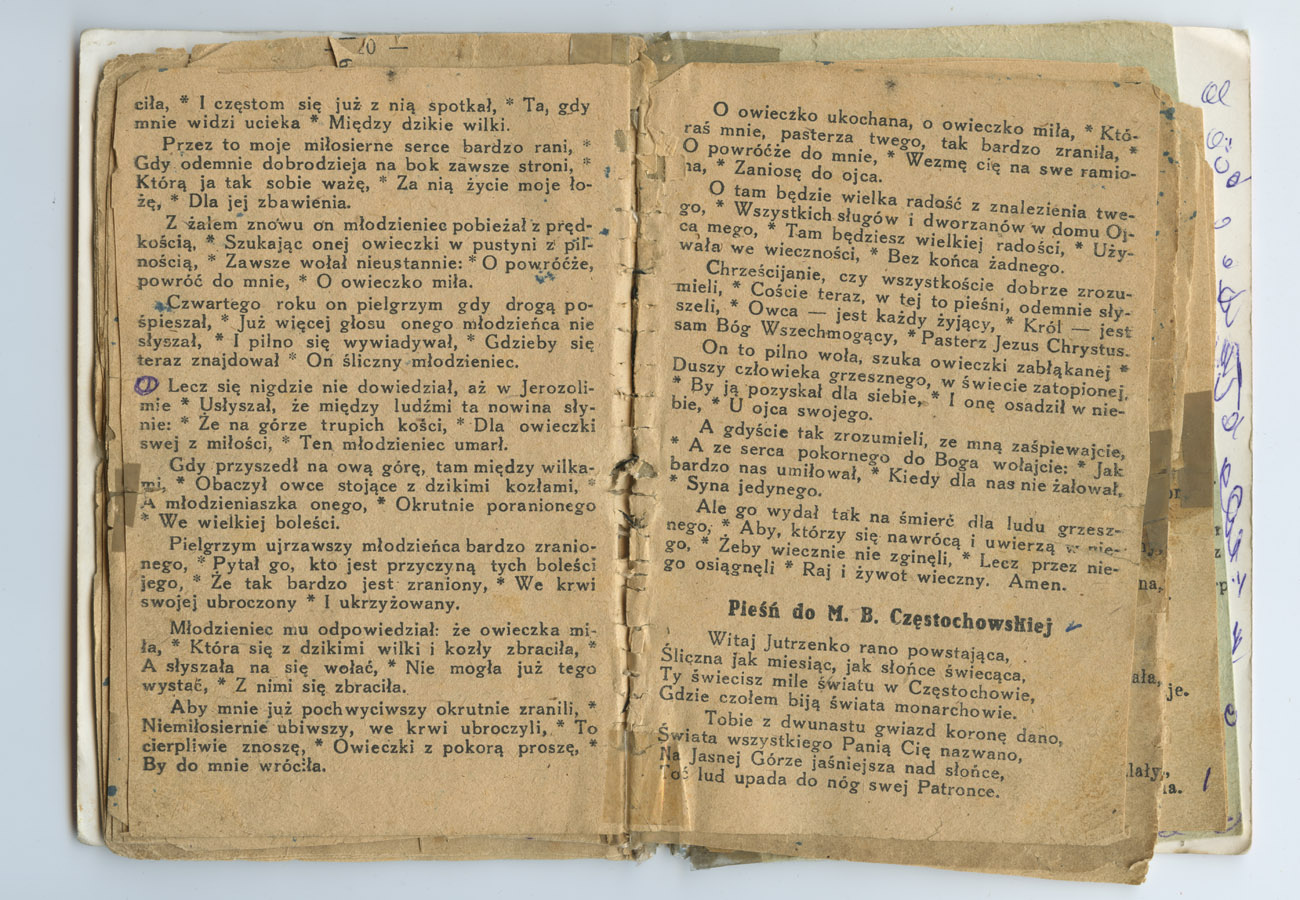 20 —
ciła, * I częstom się już z nią spotkał, * Ta, gdy
mnie widzi ucieka * Między dzikie wilki.
Przez to moje miłosierne serce bardzo rani, *
Gdy odemnie dobrodzieja na bok zawsze stroni, *
Którą ja tak sobie ważę, * Za nią życie moje ło-
żę, * Dla jej zbawienia.
Z żalem znowu on młodzieniec pobieżał z pręd-
kością, * Szukając onej owieczki w pustyni z pil-
nością, * Zawsze wołał nieustannie: * O powróćże,
powróć do mnie, * O owieczko miła.
Czwartego roku on pielgrzym gdy drogą po-
śpieszał, * Już więcej głosu onego młodzieńca nie
słyszał, * I pilno się wywiadywał, * Gdzieby się
teraz znajdował * On śliczny młodzieniec.
Lecz się nigdzie nie dowiedział, aż w Jerozoli-
mie * Usłyszał, że między ludźmi ta nowina sły-
nie: * Że na górze trupich kości, * Dla owieczki
swej z miłości, * Ten młodzieniec umarł.
Gdy przyszedł na ową górę, tam między wilka-
mi, * Obaczył owce stojące z dzikimi kozłami, *
A młodzieniaszka onego, * Okrutnie poranionego
* We wielkiej boleści.
Pielgrzym ujrzawszy młodzieńca bardzo zranio-
nego, * Pytał go, kto jest przyczyną tych boleści
jego, * Że tak bardzo jest zraniony, * We krwi
swojej ubroczony * I ukrzyżowany.
Młodzieniec mu odpowiedział: że owieczka mi-
ła, * Która się z dzikimi wilki i kozły zbraciła, *
A słyszała na się wołać, * Nie mogła już tego
wystać, * Z nimi się zbraciła.
Aby mnie już pochwyciwszy okrutnie zranili, *
Niemiłosiernie ubiwszy, we krwi ubroczyli, * To
cierpliwie znoszę, * Owieczki z pokorą proszę, *
By do mnie wróciła.
O owieczko ukochana, o owieczko miła, * Któ-
raś mnie, pasterza twego, tak bardzo zraniła, *
O powróćże do mnie, * Wezmę cię na swe ramio-
na, * Zaniosę do ojca.
O tam będzie wielka radość z znalezienia twe-
go, * Wszystkich sługów i dworzanów w domu Oj-
ca mego, * Tam będziesz wielkiej radości, * Uży-
wała we wieczności, * Bez końca żadnego.
Chrześcijanie, czy wszystkoście dobrze zrozu-
mieli, * Coście teraz, w tej to pieśni, odemnie sły-
szeli, * Owca — jest każdy żyjący, * Król — jest
sam Bóg Wszechmogący, * Pasterz Jezus Chrystus.
On to pilno woła, szuka owieczki zabłąkanej *
Duszy człowieka grzesznego, w świecie zatopionej,
* By ją pozyskał dla siebie, * I onę osadził w nie-
bie, * U ojca swojego.
A gdyście tak zrozumieli, ze mną zaśpiewajcie,
* A ze serca pokornego do Boga wołajcie: * Jak
bardzo nas umiłował, * Kiedy dla nas nie żałował,
* Syna jedynego.
Ale go wydał tak na śmierć dla ludu grzesz-
nego, * Aby, którzy się nawrócą i uwierzą w nie-
go, * Żeby wiecznie nie zginęli, * Lecz przez nie-
go osiągnęli * Raj i żywot wieczny. Amen.
Pieśń do M. B. Częstochowskiej
Witaj Jutrzenko rano powstająca,
Śliczna jak miesiąc, jak słońce świecąca,
Ty świecisz mile światu w Częstochowie,
Gdzie czołem biją świata monarchowie.
Tobie z dwunastu gwiazd koronę dano,
Świata wszystkiego Panią Cię nazwano,
Na Jasnej Górze jaśniejsza nad słońce,
Toś lud upada do nóg swej Patronce.
na,
ała,
je.
lały,
ła.